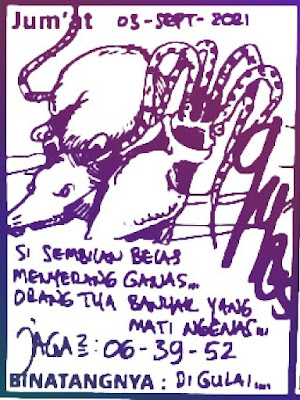 Jum'at 03-SEPT-2021
SI SEMBILAN BELAS
MENYERANG GANAS...
ORANG TUA BANJAR YANG
MATI NGENAS...
JAGA2: 06-39-52
BINATANGNYA : DI GULAI....